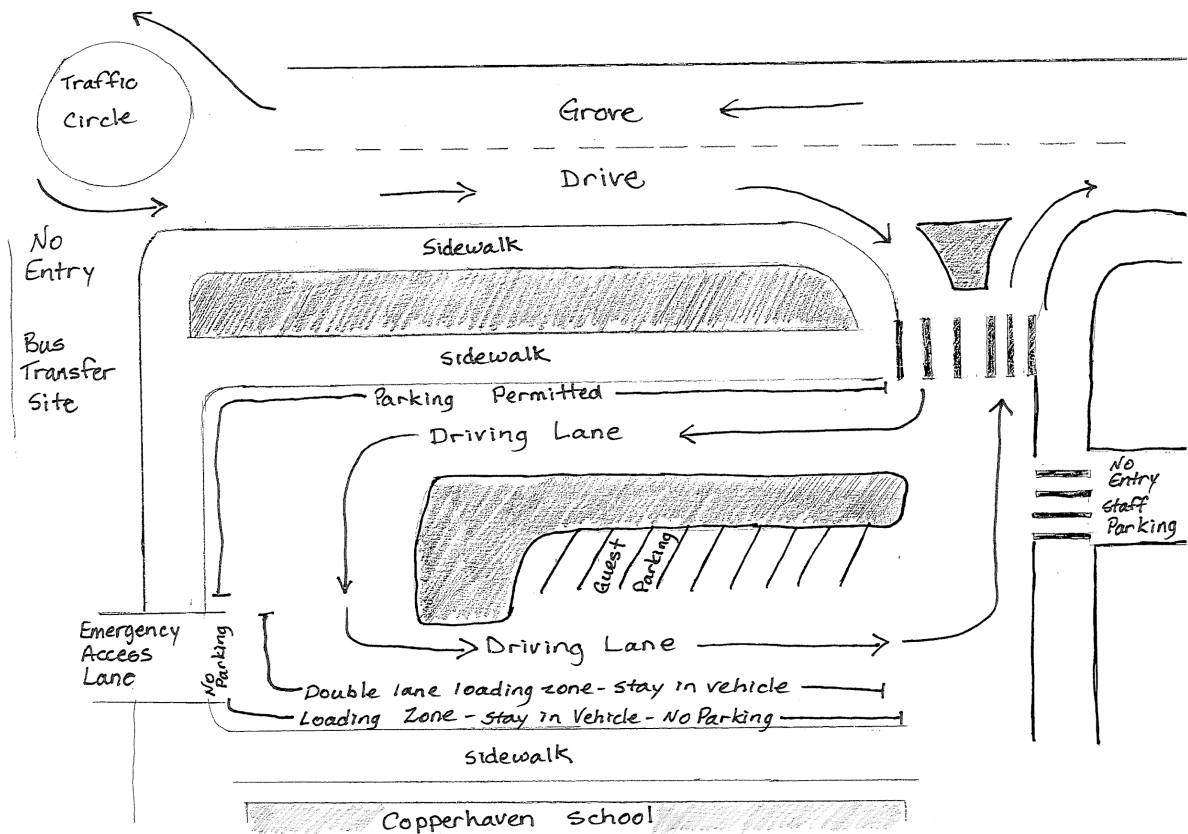 Traffic
Circle
Grove
Drive
No
Entry
Bus
Transfer
Site
Sidewalk
Sidewalk
Parking Permitted
Driving Lane
No
Entry
Staff
Parking
Guest
Parking
Emergency
Access
Lane
No
Parking
Driving Lane
Double lane loading zone - stay in vehicle
Loading Zone - Stay in Vehicle - No Parking
Sidewalk
Copperhaven School